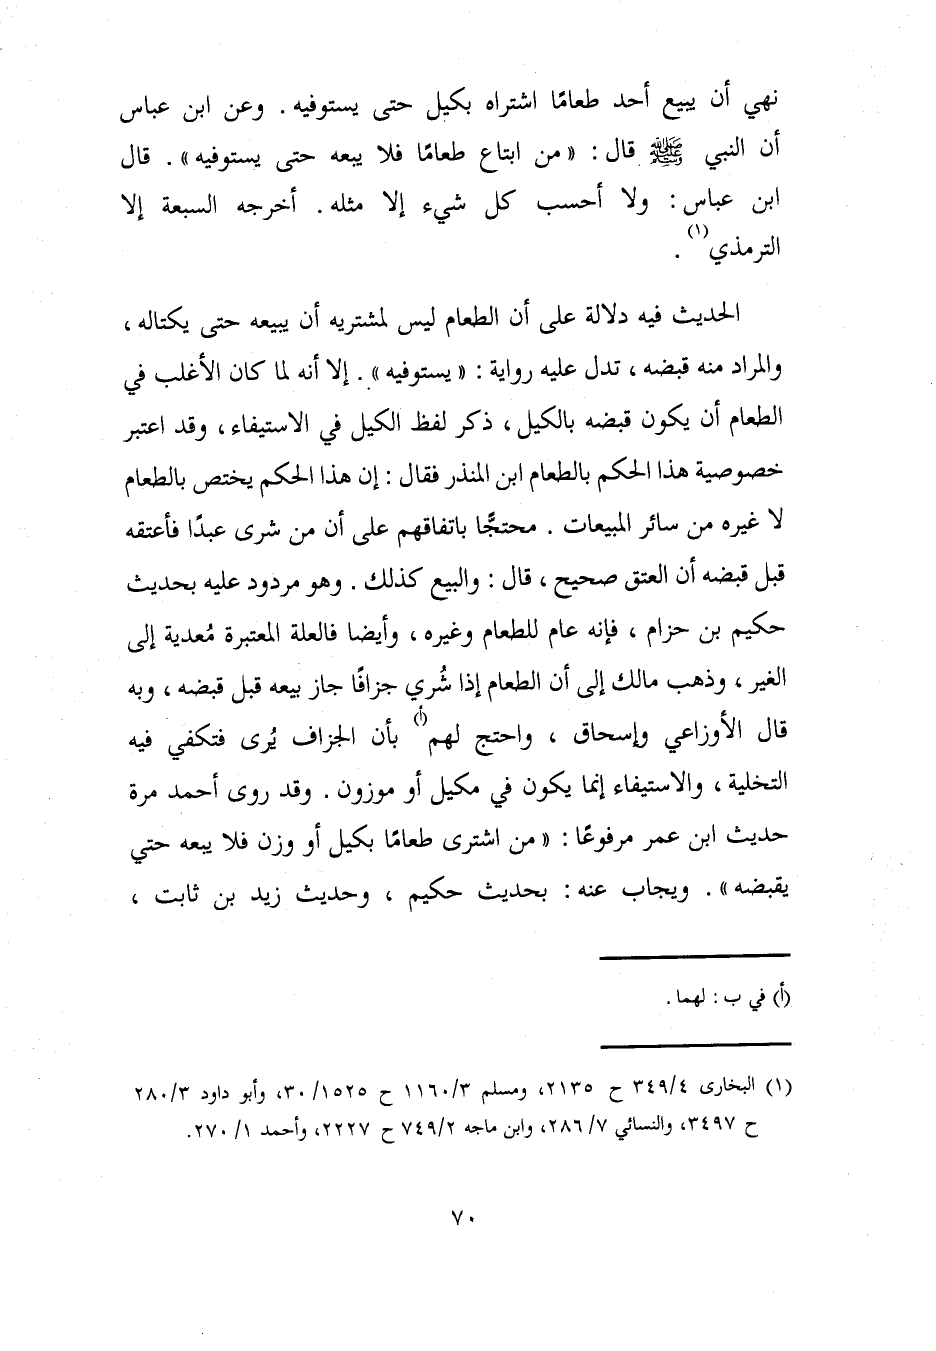 نهي أن يبيع أحد طعامًا اشتراه بكيل حتى يستوفيه . وعن ابن عباس
أن النبي ﷺ قال : « من ابتاع طعامًا فلا يبعه حتى يستوفيه » . قال
ابن عباس : ولا أحسب كل شيء إلا مثله . أخرجه السبعة إلا
الترمذي(١) .
الحديث فيه دلالة على أن الطعام ليس لمشتريه أن يبيعه حتى يكتاله ،
والمراد منه قبضه ، تدل عليه رواية : « يستوفيه » . إلا أنه لما كان الأغلب في
الطعام أن يكون قبضه بالكيل ، ذكر لفظ الكيل في الاستيفاء ، وقد اعتبر
خصوصية هذا الحكم بالطعام ابن المنذر فقال : إن هذا الحكم يختص بالطعام
لا غيره من سائر المبيعات . محتجًّا باتفاقهم على أن من شرى عبدًا فأعتقه
قبل قبضه أن العتق صحيح ، قال : والبيع كذلك . وهو مردود عليه بحديث
حكيم بن حزام ، فإنه عام للطعام وغيره ، وأيضا فالعلة المعتبرة مُعدية إلى
الغير ، وذهب مالك إلى أن الطعام إذا شُري جزافًا جاز بيعه قبل قبضه ، وبه
قال الأوزاعي وإسحاق ، واحتج لهم(أ) بأن الجزاف يُرى فتكفي فيه
التخلية ، والاستيفاء إنما يكون في مكيل أو موزون . وقد روى أحمد مرة
حديث ابن عمر مرفوعًا : « من اشترى طعامًا بكيل أو وزن فلا يبعه حتي
يقبضه » . ويجاب عنه : بحديث حكيم ، وحديث زيد بن ثابت ،
(أ) في ب : لهما .
(١) البخارى ٣٤٩/٤ ح ٢١٣٥، ومسلم ١١٦٠/٣ ح ٣٠/١٥٢٥، وأبو داود ٢٨٠/٣
ح ٣٤٩٧، والنسائي ٢٨٦/٧، وابن ماجه ٧٤٩/٢ ح ٢٢٢٧، وأحمد ٢٧٠/١.
٧٠